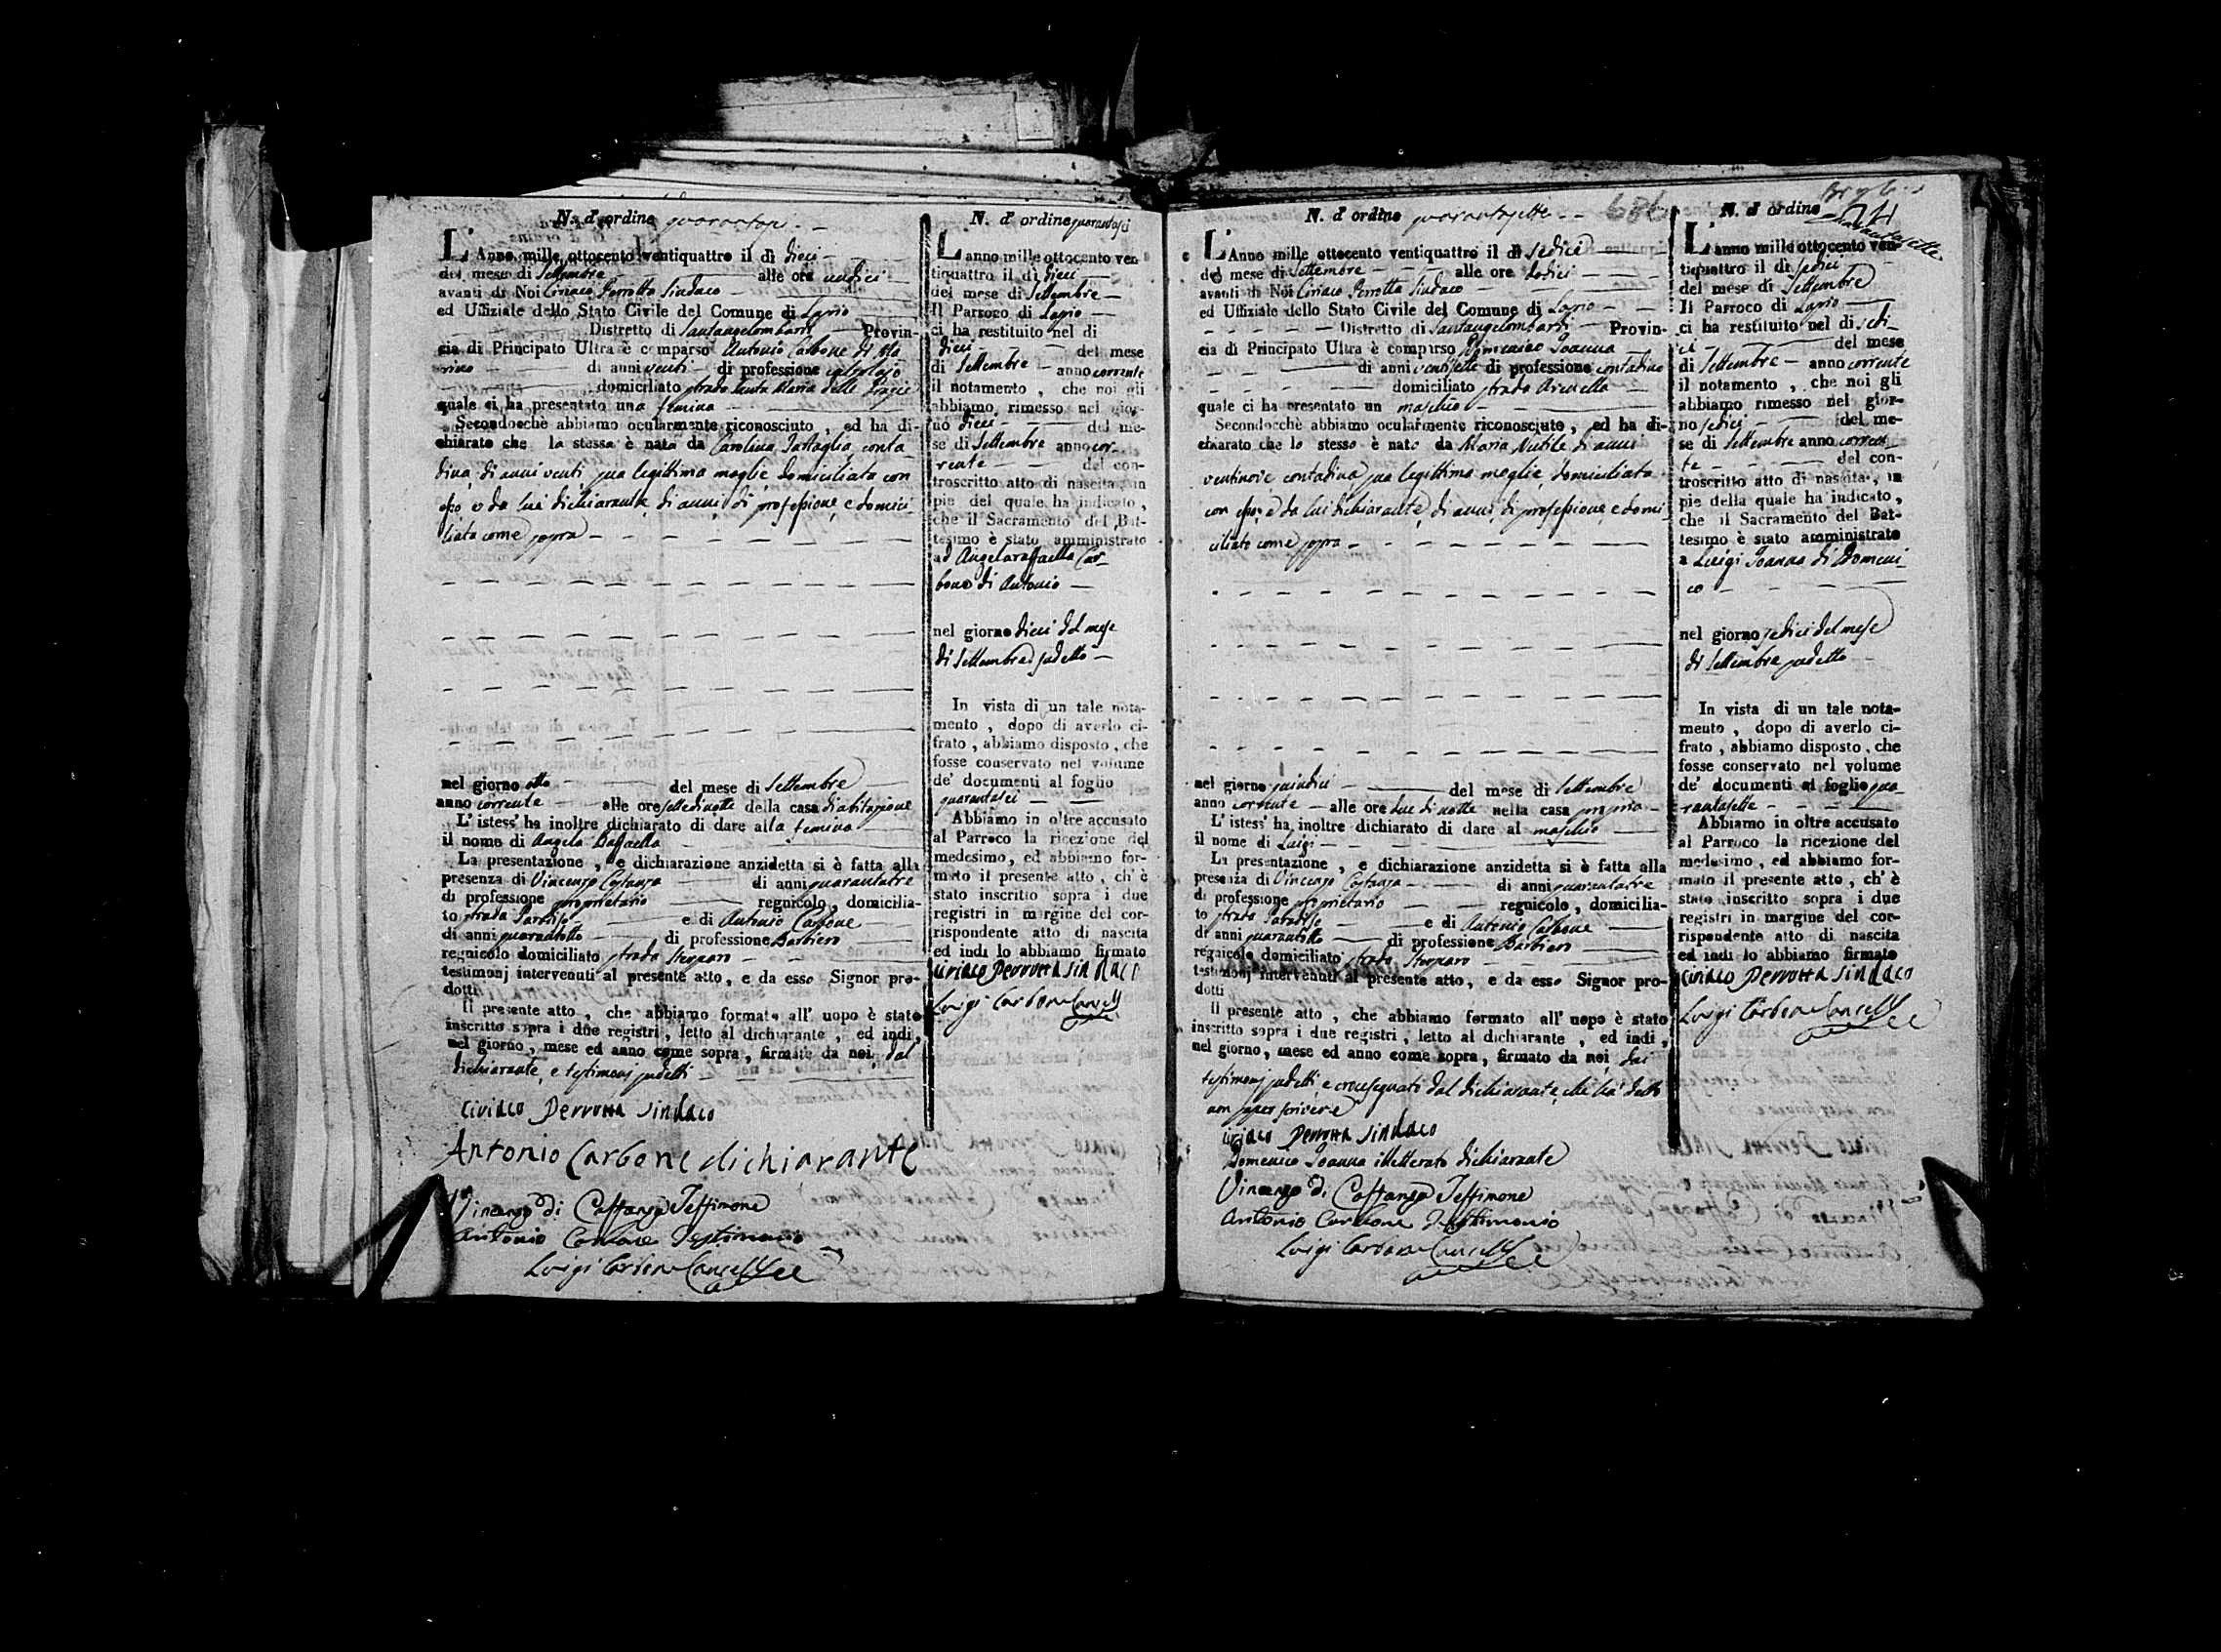 N. d' ordine quarantasei
L' Anno mille ottocento ventiquattro il dì dieci
del mese di Settembre alle ore undici
avanti di Noi Ciriaco Perrotta Sindaco
ed Uffiziale dello Stato Civile del Comune di Lapio
Distretto di Santangelombardi Provin-
cia di Principato Ultra è comparso Antonio Carbone di
di anni venti di professione calzolajo
domiciliato strada Santa Maria delle Grazie
quale ci ha presentato una femina
Secondocchè abbiamo ocularmente riconosciuto, ed ha di-
chiarato che la stessa è nata da Carolina Battaglia conta
dina, di anni venti, sua legittima moglie domiciliata con
esso e da lui dichiarante, di anni, di professione, e domici-
liato come sopra
nel giorno otto del mese di Settembre
anno corrente alle ore sette di notte della casa di abitazione
L' istess' ha inoltre dichiarato di dare alla femina
il nome di Angela Raffaella
La presentazione, e dichiarazione anzidetta si è fatta alla
presenza di Vincenzo Costanzo di anni quarantatre
di professione proprietario regnicolo, domicilia-
to strada Paradiso e di Antonio Carbone
di anni quarantotto di professione Barbiero
regnicolo domiciliato strada
testimonj intervenuti al presente atto, e da esso Signor pro-
dotti
Il presente atto, che abbiamo formato all' uopo è stato
inscritto sopra i due registri, letto al dichiarante, ed indi,
nel giorno, mese ed anno come sopra, firmato da noi, dal
dichiarante, e testimonj sudetti
Ciriaco Perrotta Sindaco
Antonio Carbone dichiarante
Vincenzo di Costanzo Testimone
Antonio Carbone Testimonio
Luigi Carbone Cancelle
N. d' ordine quarantasei
L' anno mille ottocento ven
tiquattro il dì dieci
del mese di Settembre
Il Parroco di Lapio
ci ha restituito nel di
dieci del mese
di Settembre anno corrente
il notamento, che noi gli
abbiamo rimesso nel gior-
no dieci del me-
se di Settembre anno cor-
rente del con-
troscritto atto di nascita, in
pie del quale ha indicato,
che il Sacramento del Bat-
tesimo è stato amministrato
ad Angelaraffaella Car-
bone di Antonio
nel giorno dieci del mese
di Settembre sudetto
In vista di un tale nota-
mento, dopo di averlo ci-
frato, abbiamo disposto, che
fosse conservato nel volume
de' documenti al foglio
quarantasei
Abbiamo in oltre accusato
al Parroco la ricezione del
medesimo, ed abbiamo for-
mato il presente atto, ch' è
stato inscritto sopra i due
registri in margine del cor-
rispondente atto di nascita
ed indi lo abbiamo firmato
Ciriaco Perrotta Sindaco
Luigi Carbone Cancell
N. d' ordine quarantasette 686
L' Anno mille ottocento ventiquattro il dì Sedici
del mese di Settembre alle ore dodici
avanti di Noi Ciriaco Perrotta Sindaco
ed Uffiziale dello Stato Civile del Comune di Lapio
Distretto di Santangelombardi Provin-
cia di Principato Ultra è comparso Domenico Ioanna
di anni ventisette di professione contadino
domiciliato strada Arenella
quale ci ha presentato un maschio
Secondocchè abbiamo ocularmente riconosciuto, ed ha di-
chiarato che lo stesso è nato da Maria Nutile di anni
ventinove contadina, sua legittima moglie, domiciliata
con esso, e da lui dichiarante, di anni, di professione, e domi-
ciliato come sopra
nel giorno quindici del mese di Settembre
anno corrente alle ore due di notte nella casa propria
L' istess' ha inoltre dichiarato di dare al maschio
il nome di Luigi
La presentazione, e dichiarazione anzidetta si è fatta alla
presenza di Vincenzo Costanzo di anni quarantatre
di professione proprietario regnicolo, domicilia-
to strada Paradiso e di Antonio Carbone
di anni quarantotto di professione Barbiero
regnicolo domiciliato strada
testimonj intervenuti al presente atto, e da esso Signor pro-
dotti
Il presente atto, che abbiamo formato all' uopo è stato
inscritto sopra i due registri, letto al dichiarante, ed indi,
nel giorno, mese ed anno come sopra, firmato da noi, dai
testimonj sudetti, e crocesegnato dal dichiarante, che ha detto
non saper scrivere
Ciriaco Perrotta Sindaco
Domenico Ioanna illetterato dichiarante
Vincenzo di Costanzo Testimone
Antonio Carbone Testimonio
Luigi Carbone Cancelle
N. d' ordine
quarantasette
24
L' anno mille ottocento ven-
tiquattro il dì sedici
del mese di Settembre
Il Parroco di Lapio
ci ha restituito nel di sedi-
ci del mese
di Settembre anno corrente
il notamento, che noi gli
abbiamo rimesso nel gior-
no sedici del me-
se di Settembre anno corren-
te del con-
troscritto atto di nascita, in
pie della quale ha indicato,
che il Sacramento del Bat-
tesimo è stato amministrato
a Luigi Ioanna di Domeni-
co
nel giorno sedici del mese
di Settembre sudetto
In vista di un tale nota-
mento, dopo di averlo ci-
frato, abbiamo disposto, che
fosse conservato nel volume
de' documenti al foglio qua-
rantasette
Abbiamo in oltre accusato
al Parroco la ricezione del
medesimo, ed abbiamo for-
mato il presente atto, ch' è
stato inscritto sopra i due
registri in margine del cor-
rispondente atto di nascita
ed indi lo abbiamo firmato
Ciriaco Perrotta Sindaco
Luigi Carbone Cancelle